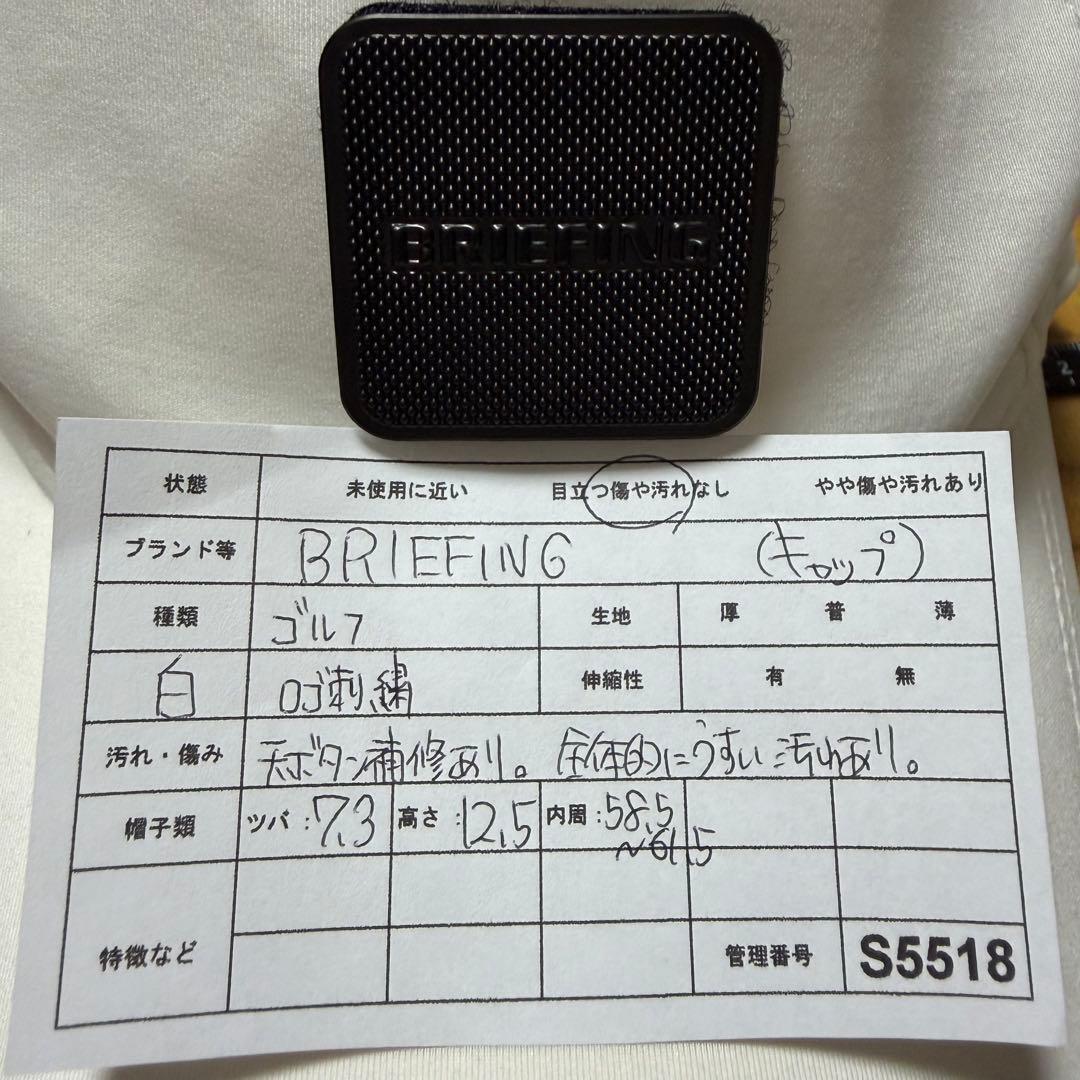 BRIEFING
2
状態 未使用に近い 目立つ傷や汚れなし やや傷や汚れあり
ブランド等 BRIEFING (キャップ)
種類 ゴルフ 生地 厚 普 薄
白 ロゴ刺繍 伸縮性 有 無
汚れ・傷み 天ボタン補修あり。全体的にうすい汚れあり。
帽子類 ツバ:7.3 高さ:12.5 内周:58.5
~61.5
特徴など 管理番号 S5518